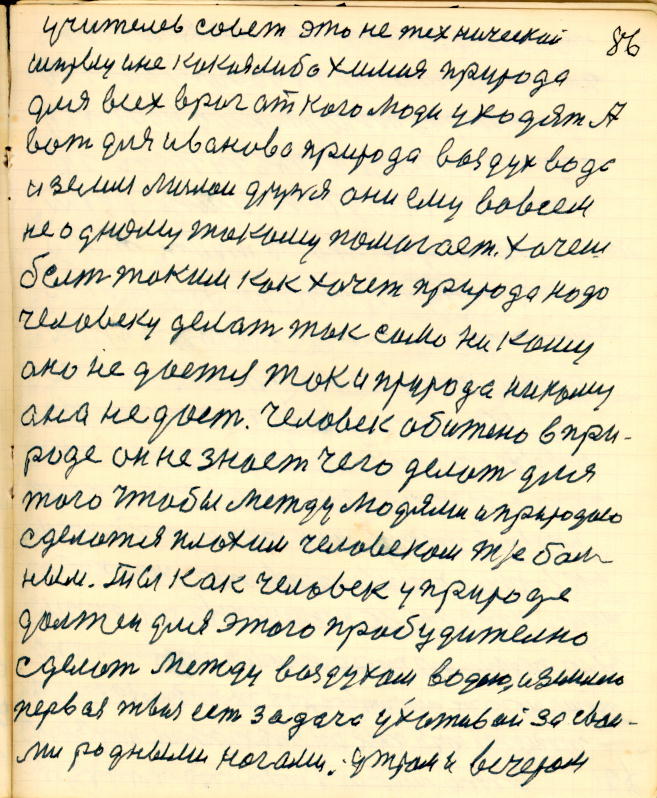 86
учителев совет это не технический
не какаялиба химия природа
для всех враг от кого люди уходят А
вот для иванова природа воздух вода
и земля милои друзя они ему вовсем
не одному такому помогает. хочеш
бект таким как хочет природа надо
человеку делат так само ни кому
оно не дается так и природа никому
она не даст. человек обижено в при-
роде он не знает чего делат для
того чтобы между людями и природою
сделатся плохим человеком т/е бал
ным. Ты как человек у природе
должен для этого пробудително
сделат между воздухом водою, и землею
первая твая ест задача ухаживай за свои-
ми родными ногами. утром и вечером